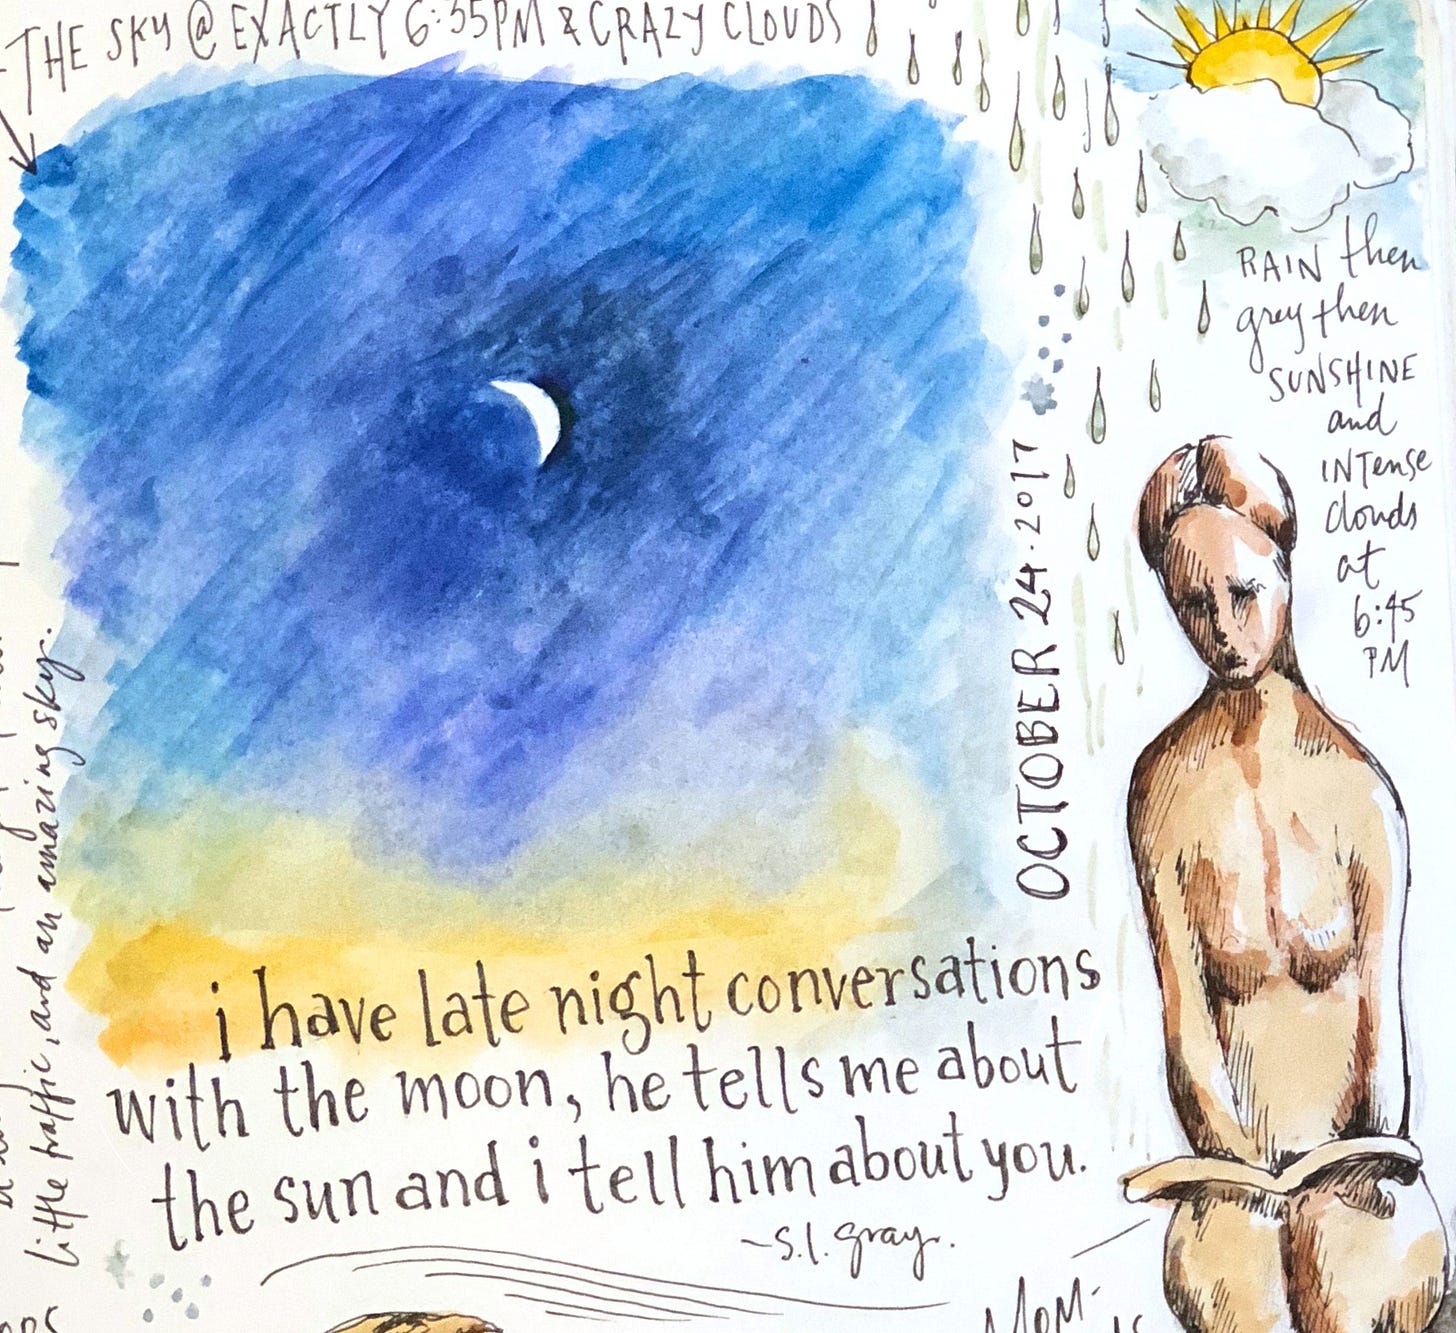 THE SKY @ EXACTLY 6:35PM & CRAZY CLOUDS
RAIN then
grey then
SUNSHINE
and
INTense
clouds
at
6:45
PM
OCTOBER 24.2017
little traffic, and an amazing sky.
i have late night conversations
with the moon, he tells me about
the sun and i tell him about you.
~s.l. gray.
MOM-